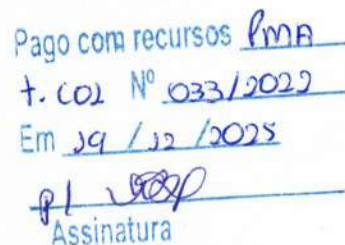 Pago com recursos PMA
t. col Nº 033/2022
Em 29 / 12 / 2025
p/
Assinatura